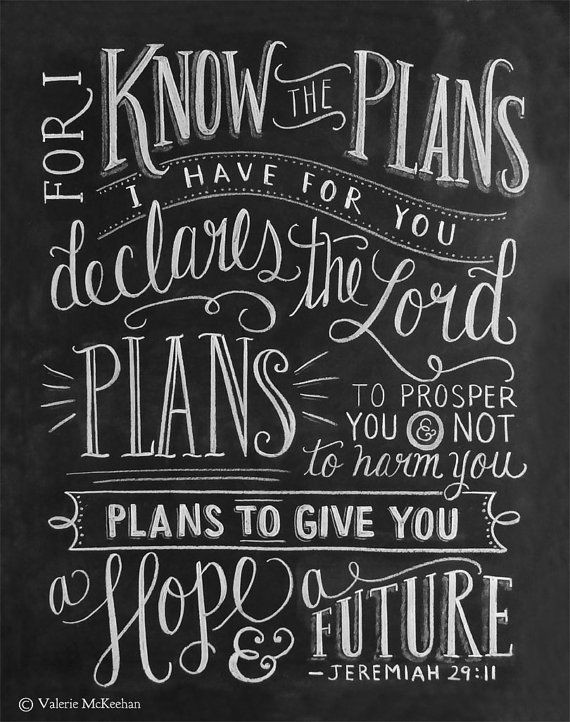 FOR I KNOW THE PLANS
I HAVE FOR YOU
declares the Lord
PLANS
TO PROSPER
YOU & NOT
to harm you
PLANS TO GIVE YOU
a Hope & a
FUTURE
– JEREMIAH 29:11
© Valerie McKeehan